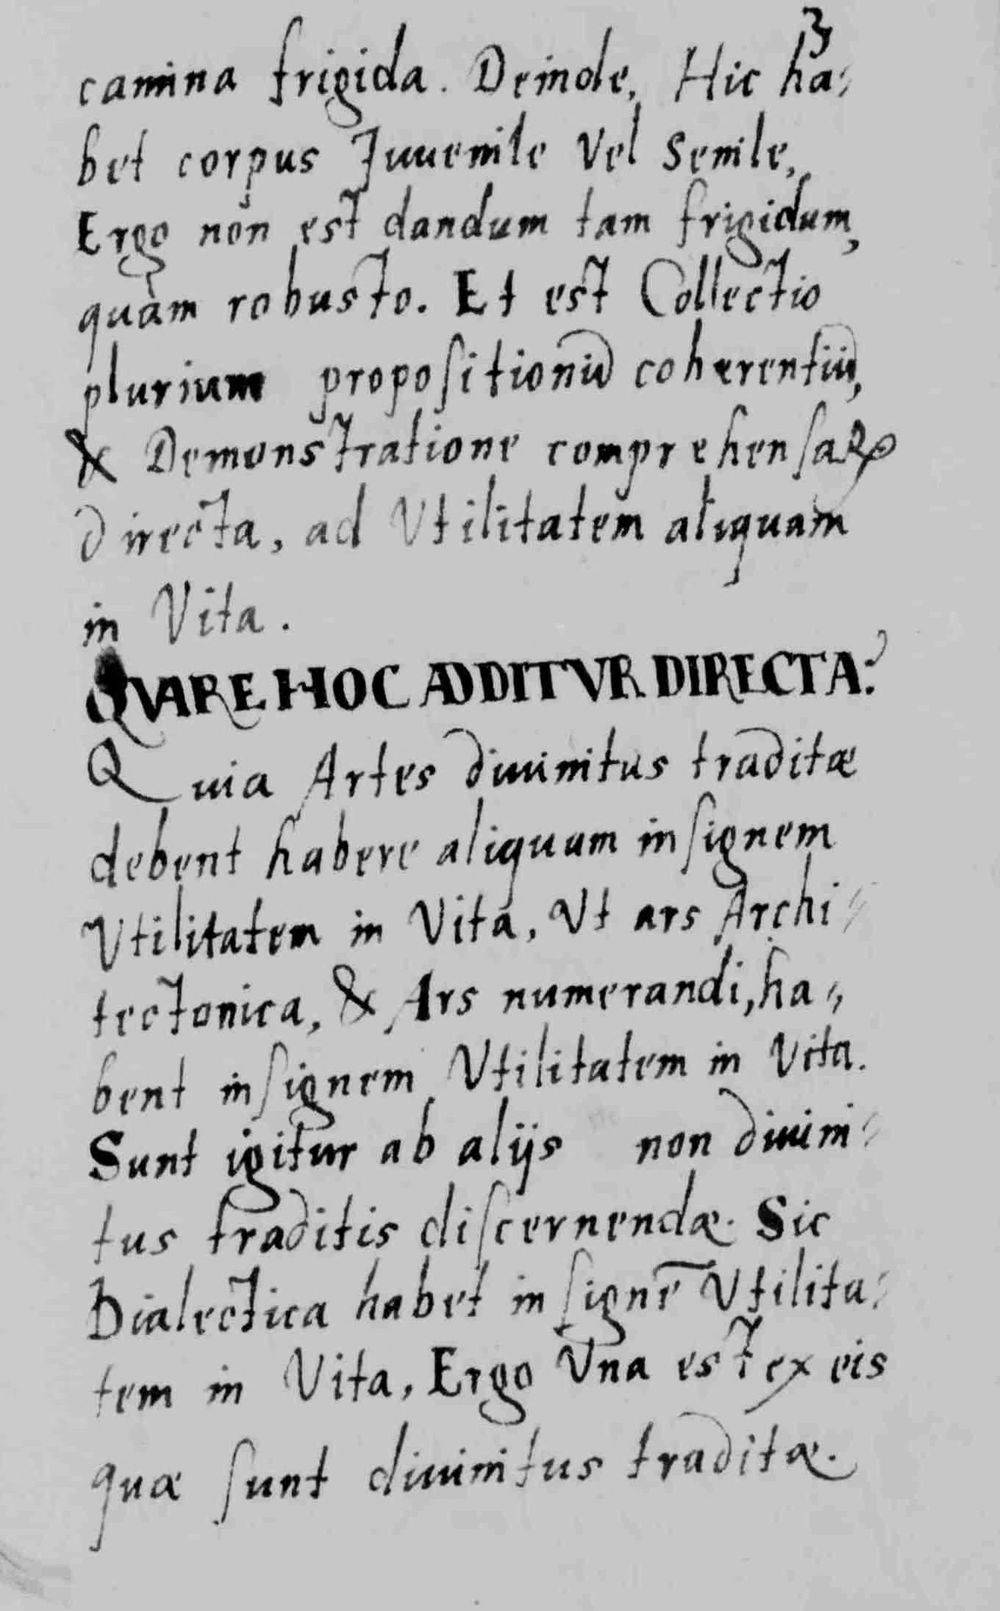 3
camina frigida. Deinde, Hic ha⸗
bet corpus Juuenile Vel senile,
Ergo non est dandum tam frigidum,
quàm robusto. Et est Collectio
plurium propositionũ coherentiũ,
& Demonstratione comprehensaꝝ
directa, ad Vtilitatem aliquam
in Vita.
QVARE HOC ADDITVR DIRECTA?
Quia Artes diuinitus traditæ
debent habere aliquam insignem
Vtilitatem in Vita, Vt ars Archi⸗
tectonica, & Ars numerandi, ha⸗
bent insignem Vtilitatem in Vita.
Sunt igitur ab alijs non diuini⸗
tus traditis discernendæ. Sic
Dialectica habet insignẽ Vtilita⸗
tem in Vita, Ergo Vna est ex eis
quæ sunt diuinitus traditæ.